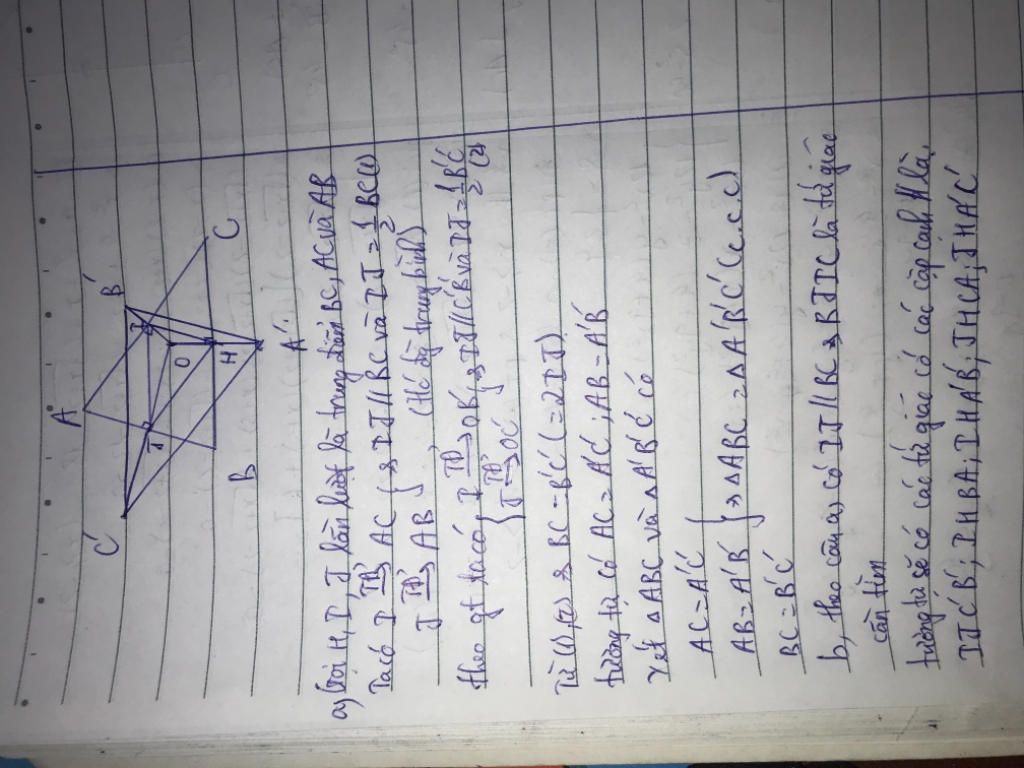 A
C' B'
J I
O
B H C
A'
a) Gọi H, I, J lần lượt là trung điểm BC, AC và AB
Ta có I TĐ→ AC } => IJ // BC và IJ = 1/2 BC (1)
J TĐ→ AB } (t/c đg trung bình)
theo gt ta có { I TĐ→ OB' } => IJ // C'B' và IJ = 1/2 B'C' (2)
{ J TĐ→ OC'
Từ (1), (2) => BC = B'C' (= 2IJ)
tương tự có AC = A'C'; AB = A'B'
Xét △ABC và △A'B'C' có
AC = A'C'
AB = A'B' } => △ABC = △A'B'C' (c.c.c)
BC = B'C'
b, theo câu a, có IJ // BC => BJIC là tứ giác
cần tìm
tương tự sẽ có các tứ giác có các cặp cạnh // là,
IJC'B'; IHBA, IHA'B', JHCA; JHA'C'